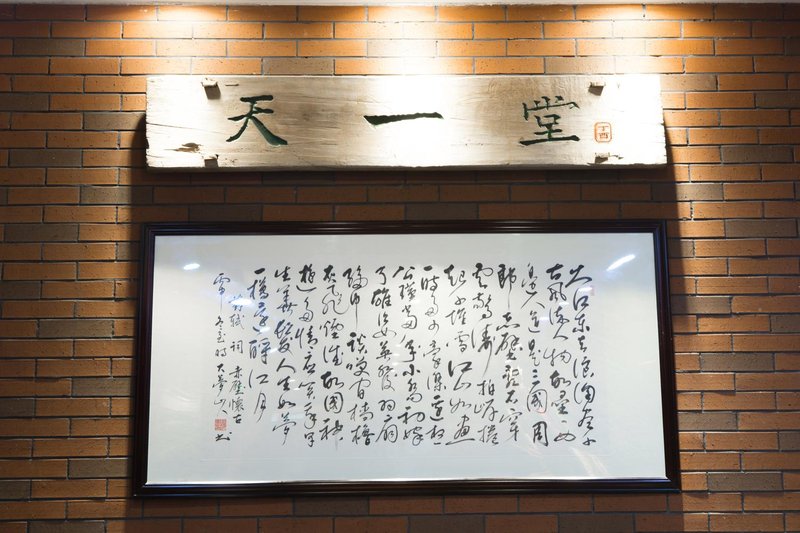 天一堂
丁酉
大江东去浪淘尽千
古风流人物故垒西
边人道是三国周
郎赤壁乱石穿
云惊涛拍岸卷
起千堆雪江山如画
一时多少豪杰遥想
公瑾当年小乔初嫁
了雄姿英发羽扇
纶巾谈笑间樯橹
灰飞烟灭故国神
遊多情应笑我早
生华发人生如梦
一樽还酹江月
苏轼词赤壁怀古
冬至时大梦山书